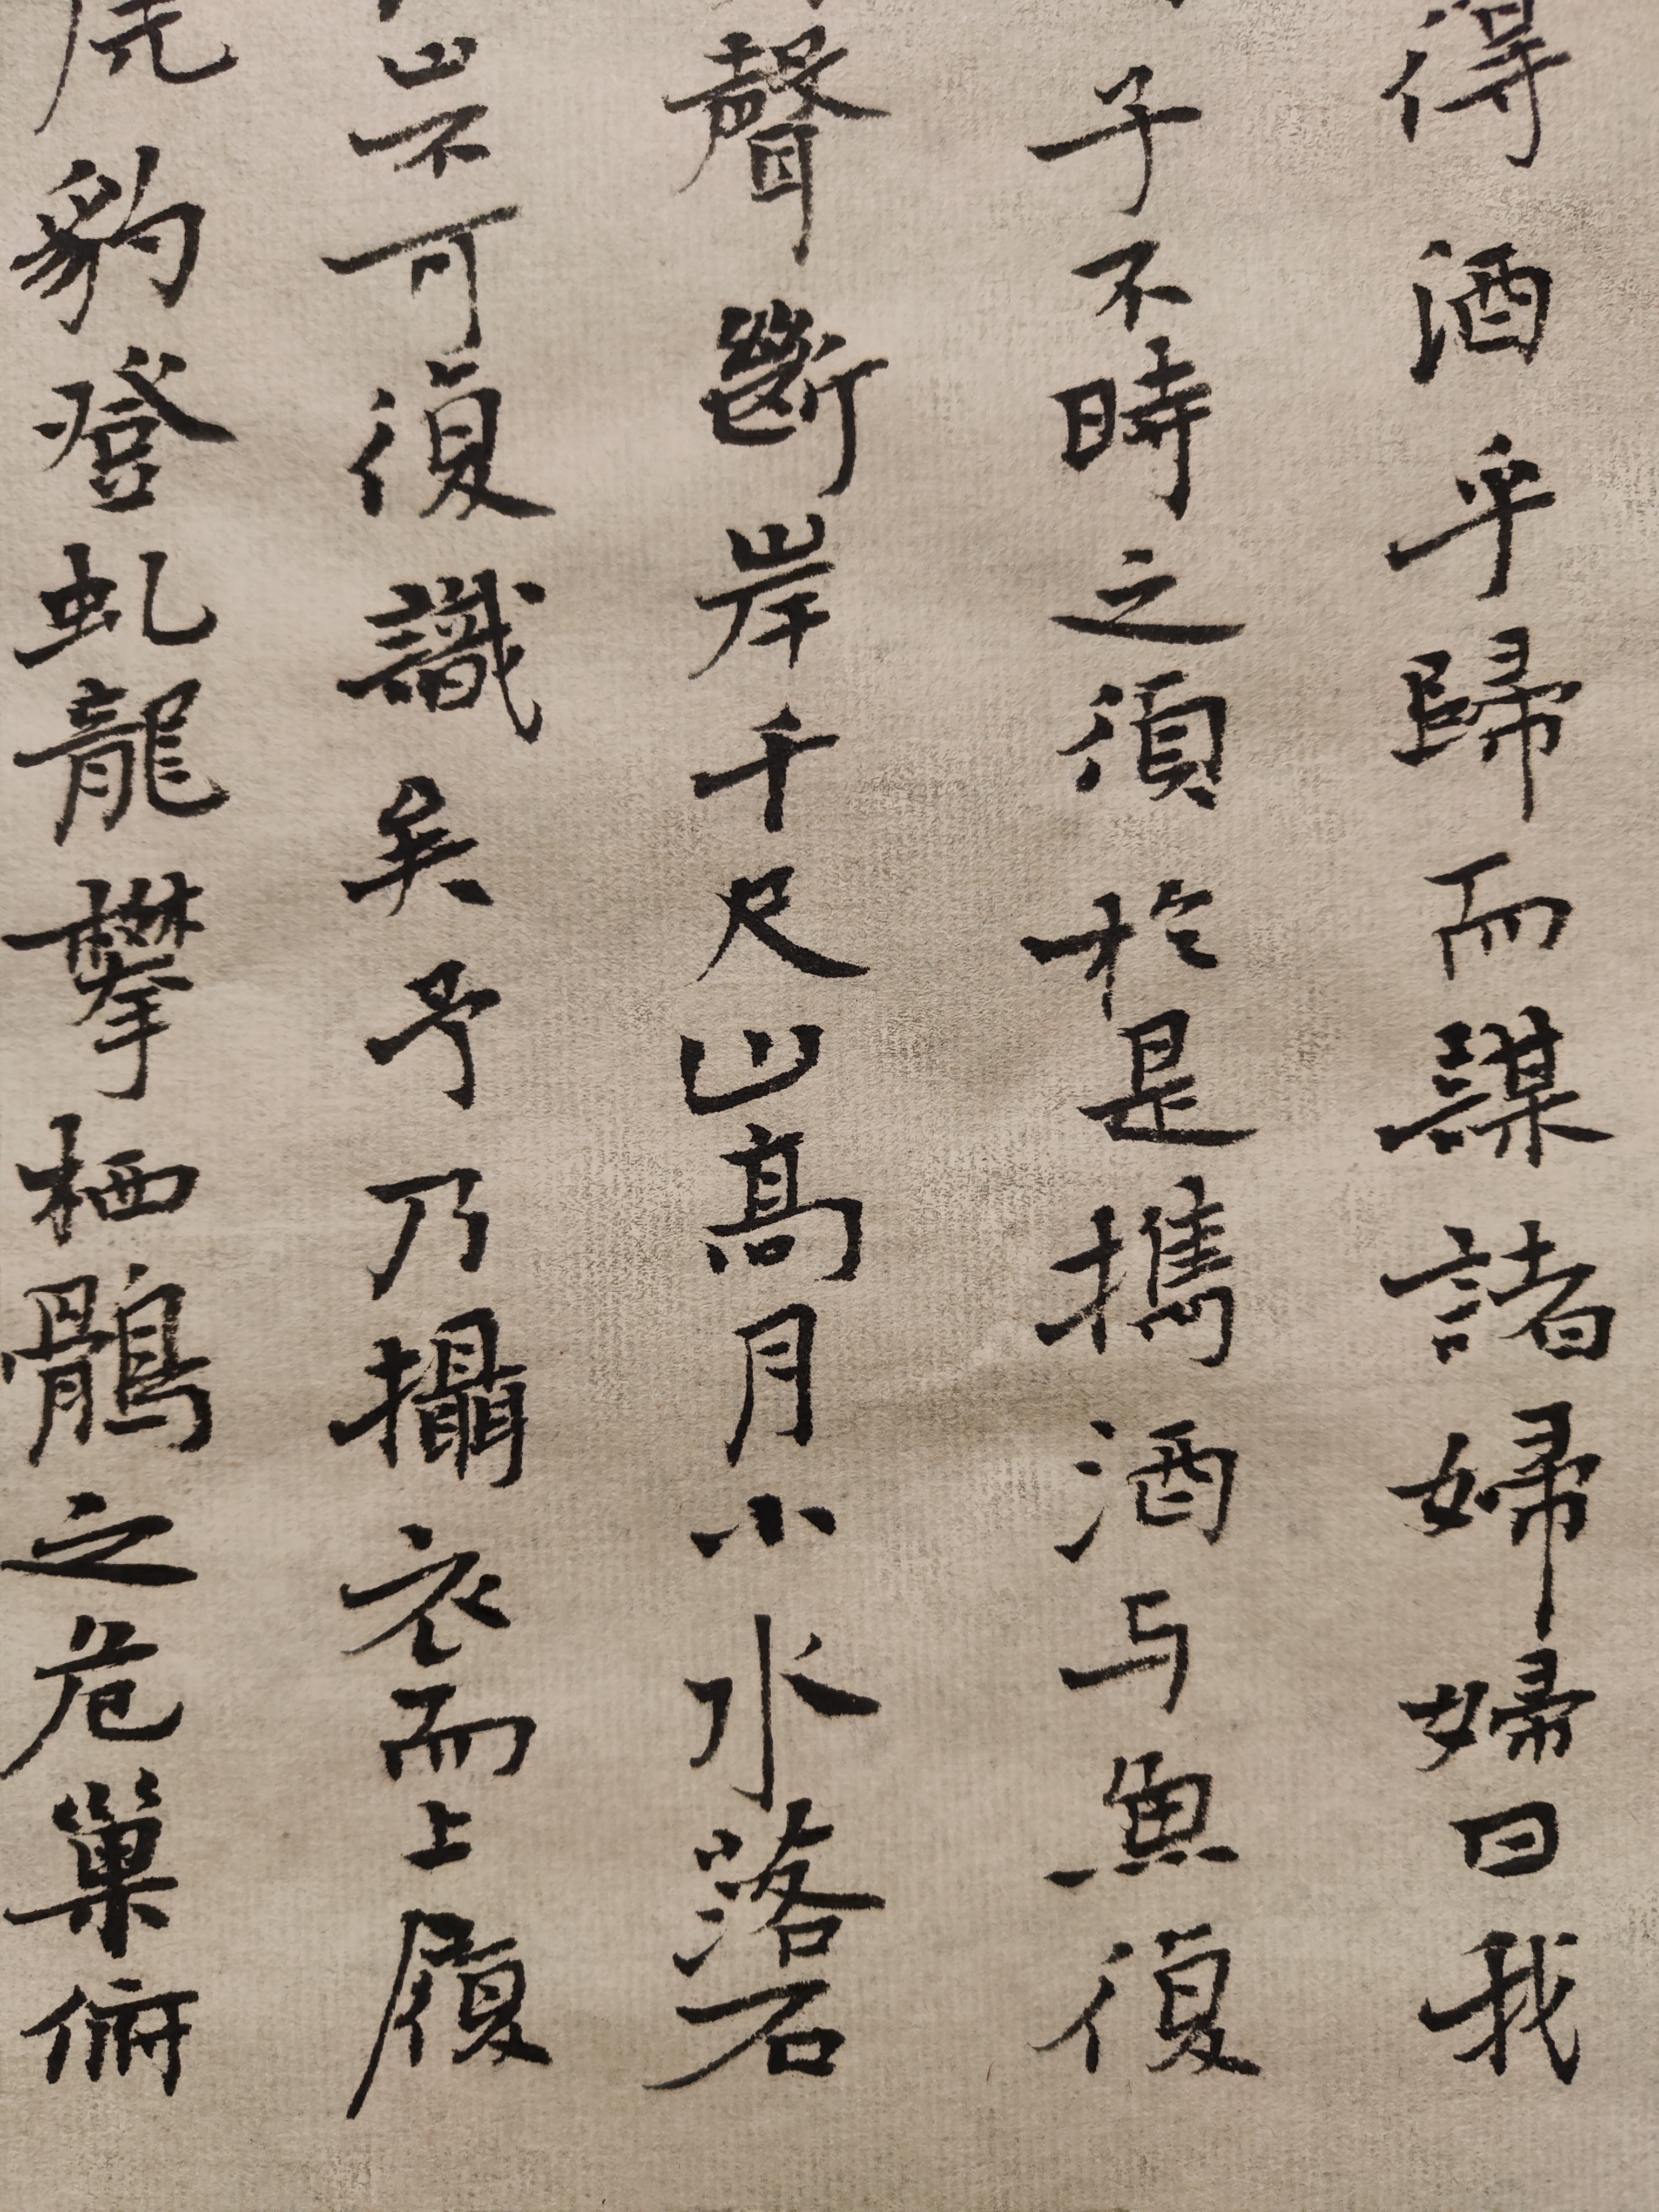 得酒乎歸而謀諸婦婦曰我
子不時之須於是攜酒与魚復
聲斷岸千尺山高月小水落石
山不可復識矣予乃攝衣而上履
虎豹登虬龍攀栖鶻之危巢俯